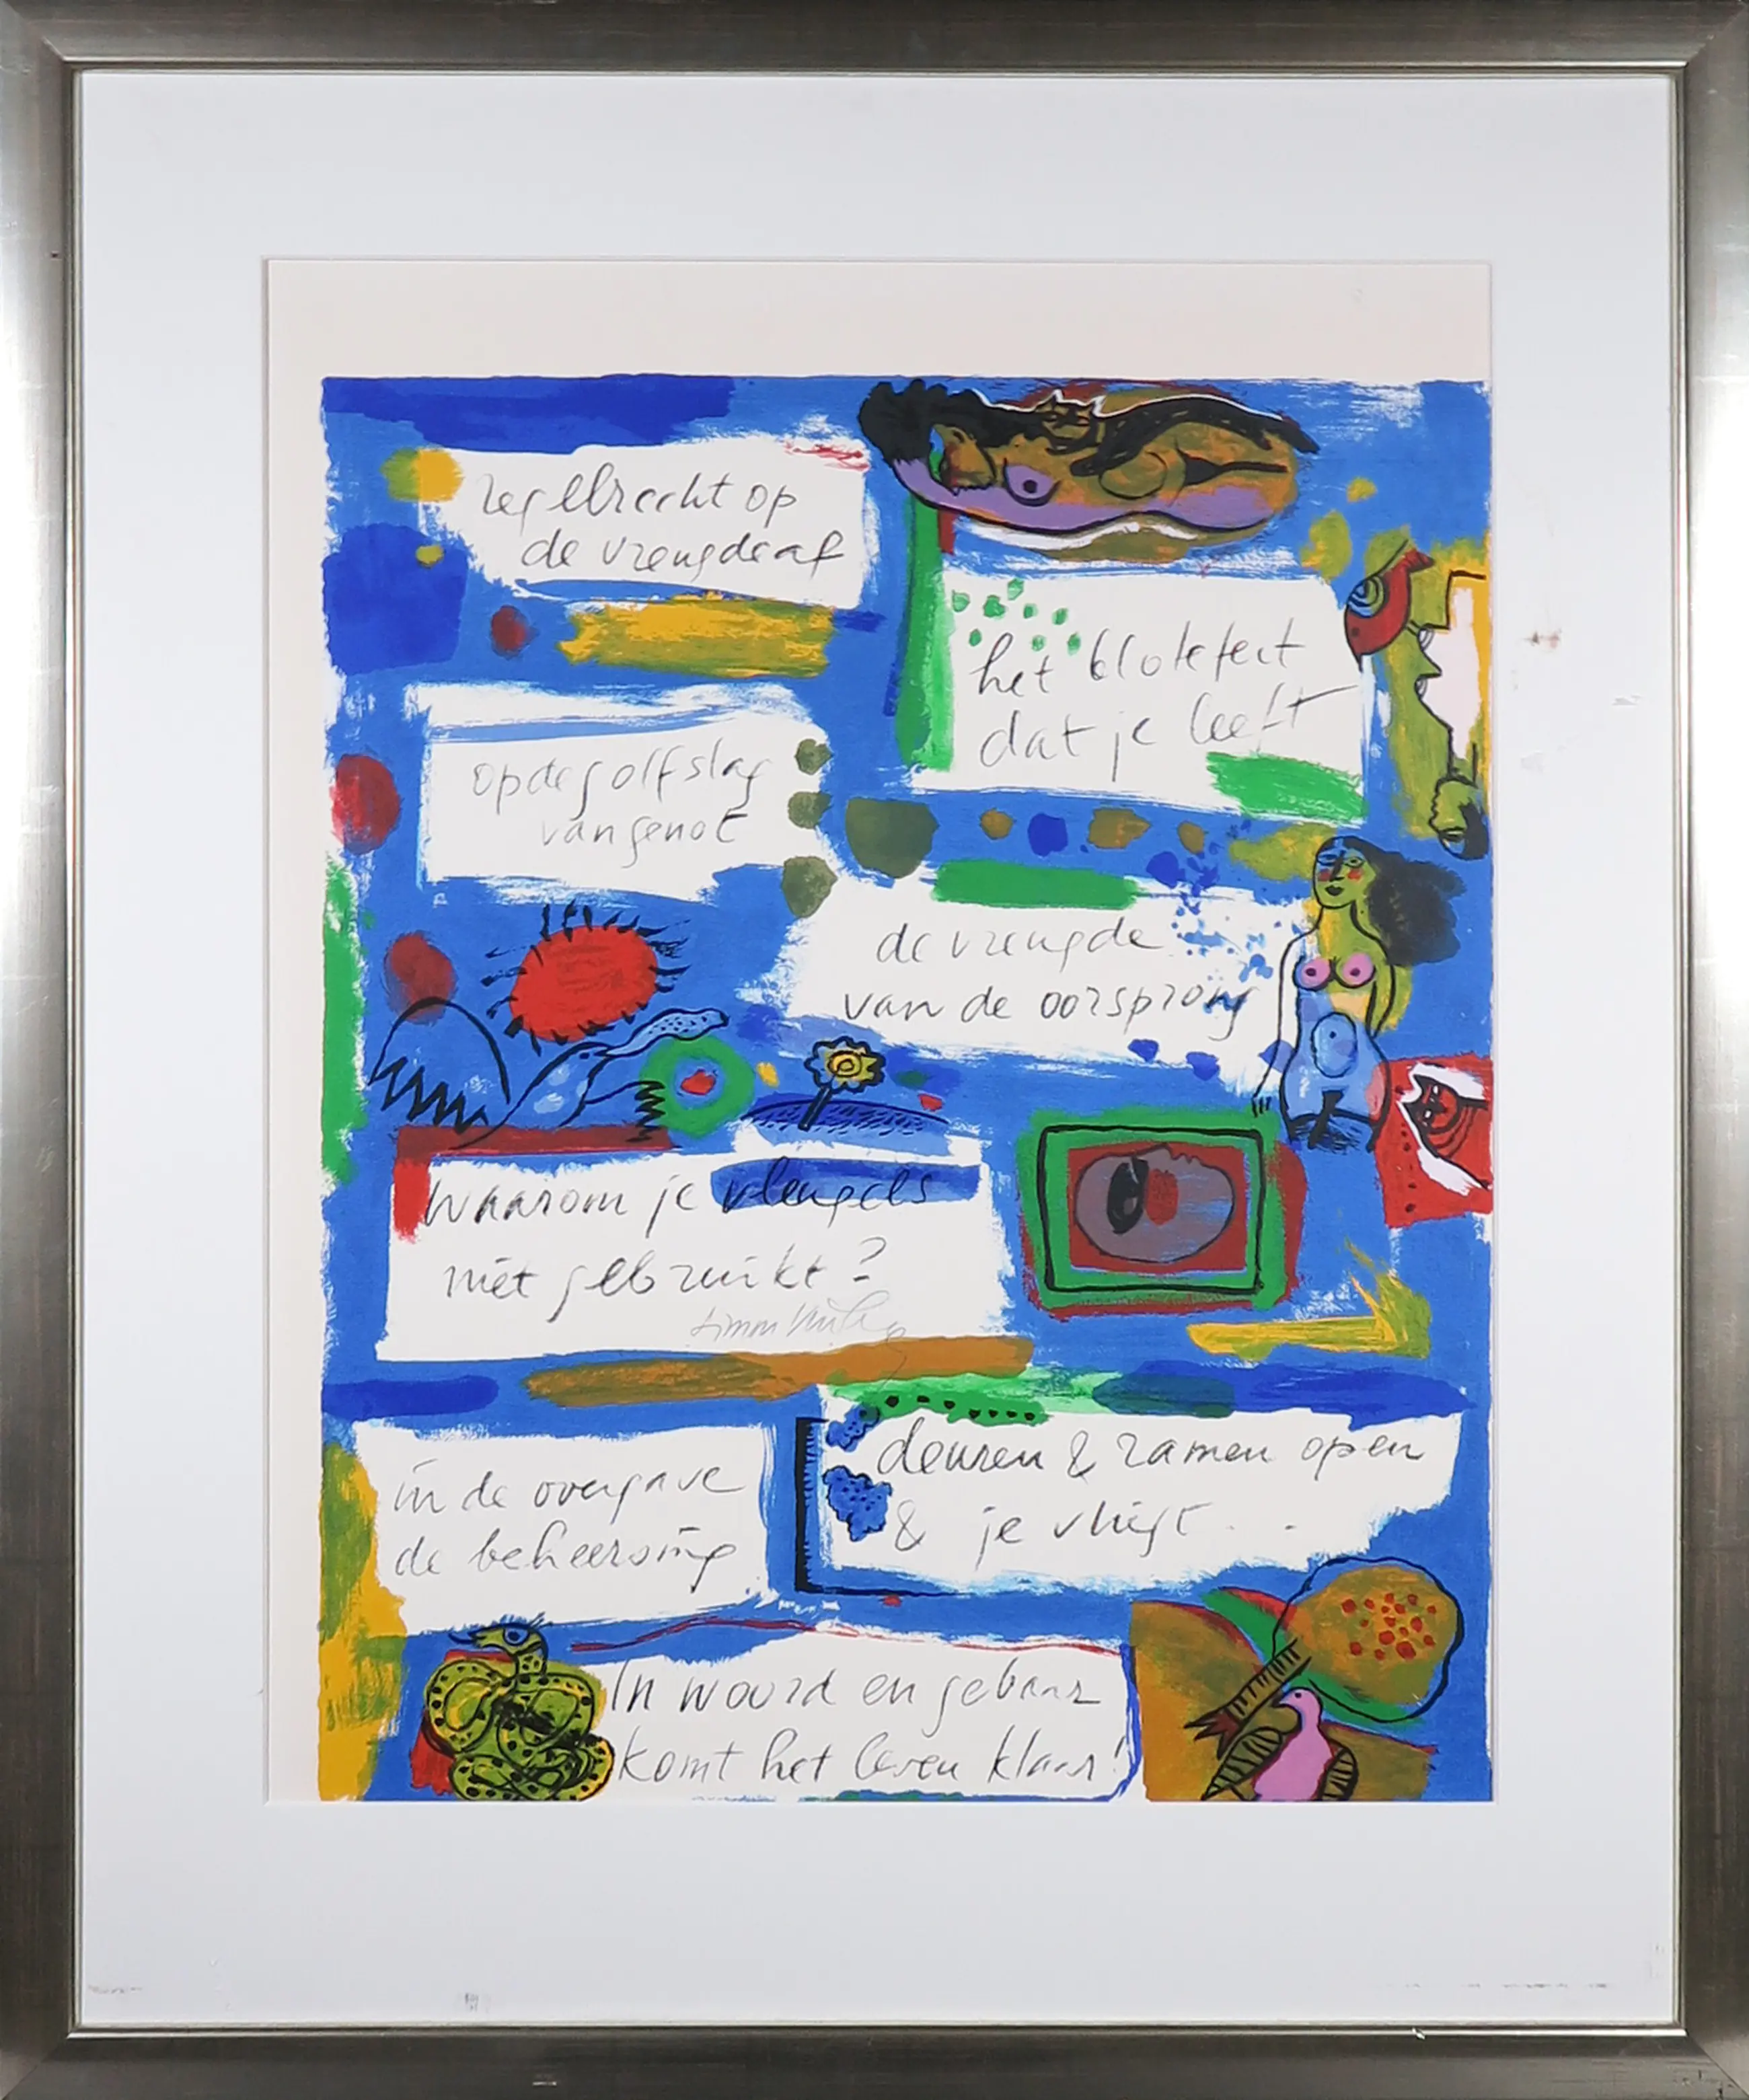 regelbrecht op
de vreugde af
het blote feit
dat je leeft
op de golfslag
van genot
de vreugde
van de oorsprong
waarom je vleugels
niet gebruikt?
Simon Vinkenoog
deuren & ramen open
& je vliegt . .
in de overgave
de beheersing
In woord en gebaar
komt het leven klaar!